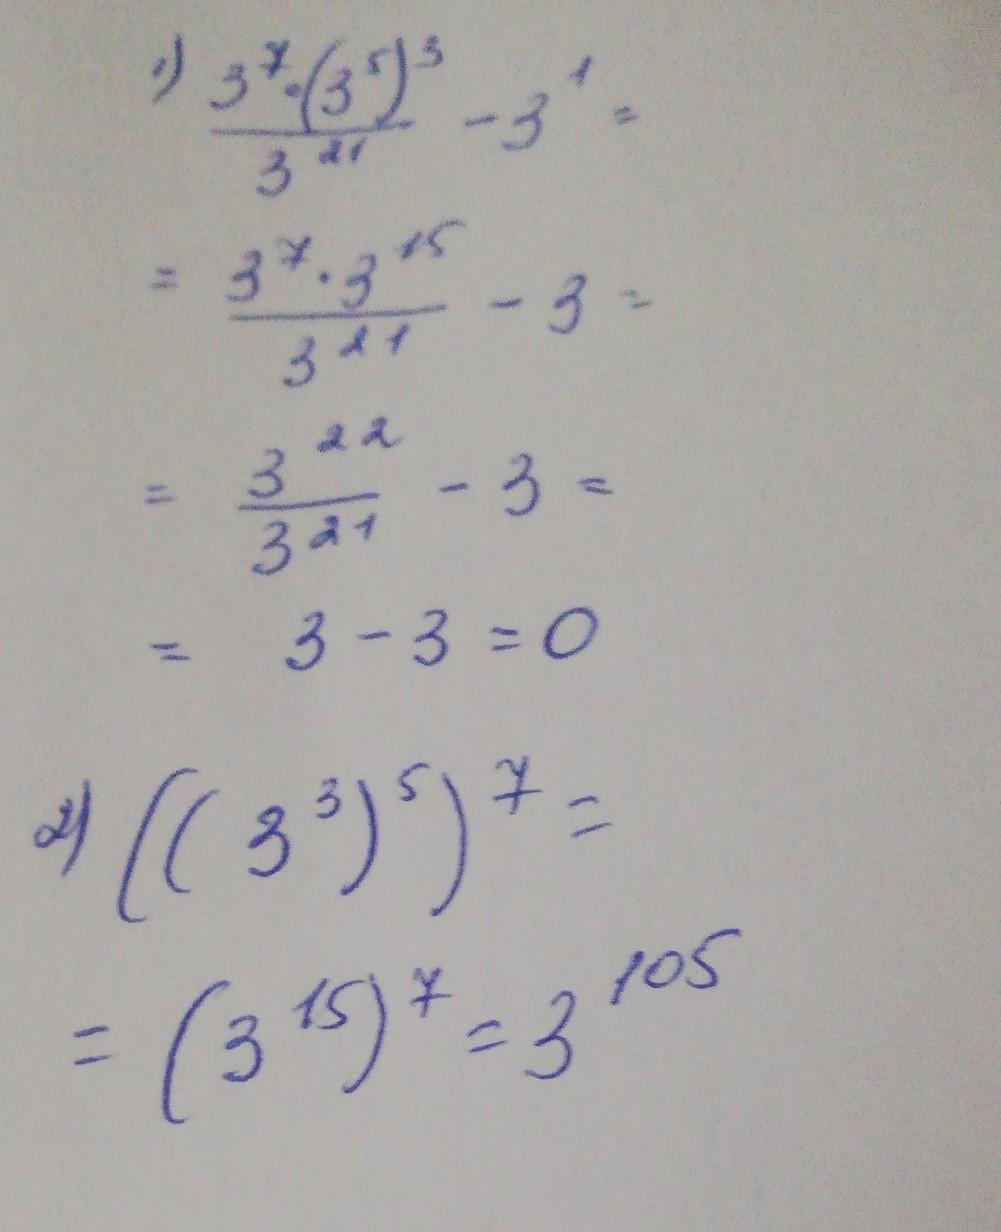 1) \frac{3^7 \cdot (3^5)^3}{3^{21}} - 3^1 =
= \frac{3^7 \cdot 3^{15}}{3^{21}} - 3 =
= \frac{3^{22}}{3^{21}} - 3 =
= 3 - 3 = 0
2) ((3^3)^5)^7 =
= (3^{15})^7 = 3^{105}